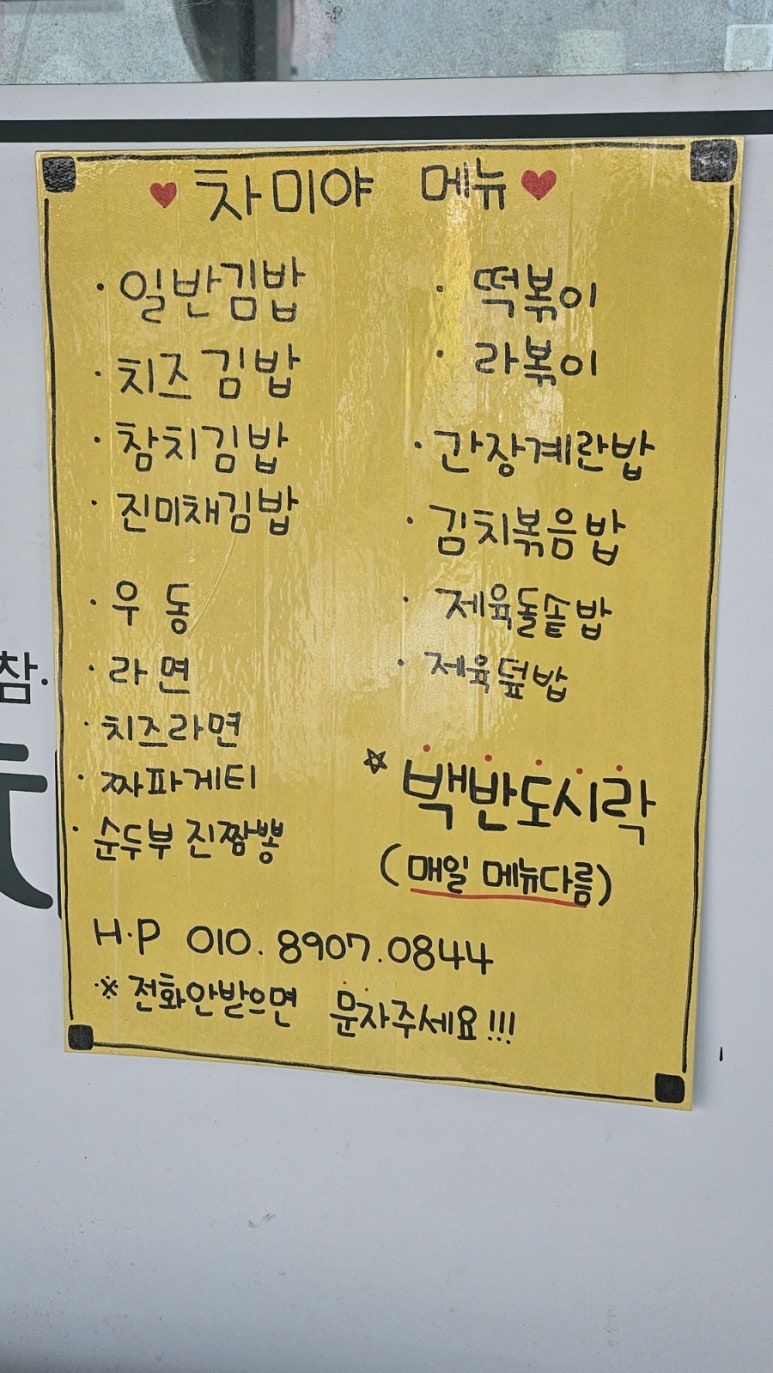 ♥ 차미야 메뉴 ♥
· 일반김밥
· 치즈 김밥
· 참치김밥
· 진미채김밥
· 우동
· 라면
· 치즈라면
· 짜파게티
· 순두부 진짬뽕
· 떡볶이
· 라볶이
· 간장계란밥
· 김치볶음밥
· 제육돌솥밥
· 제육덮밥
☆ 백반도시락
(매일 메뉴다름)
H·P 010. 8907. 0844
※ 전화안받으면 문자주세요!!!
참·